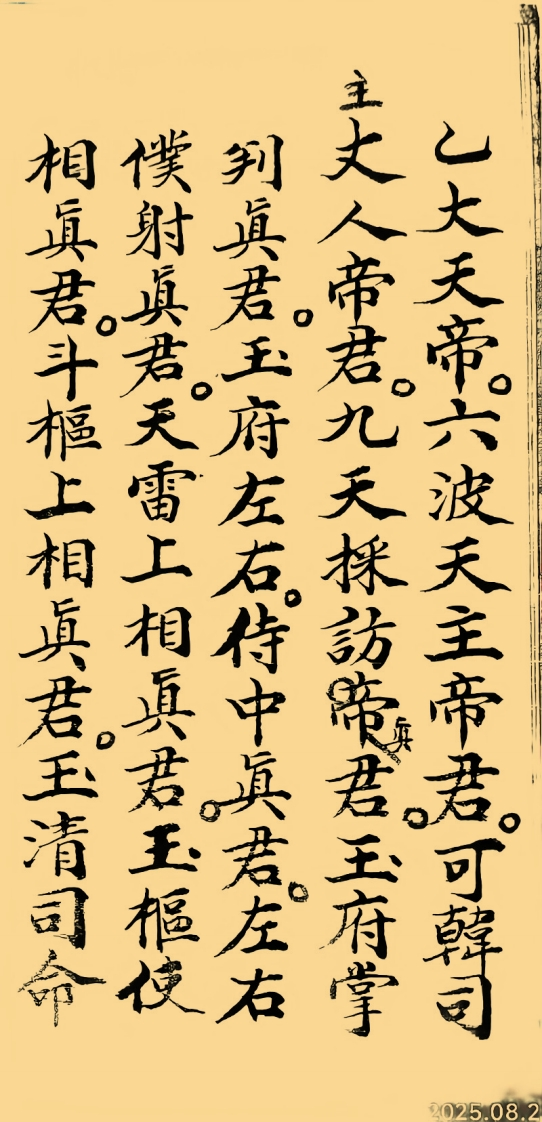 乙大天帝。六波天主帝君。可韓司
主丈人帝君。九天採訪帝眞君。玉府掌
判眞君。玉府左右。侍中眞君。左右
僕射眞君。天雷上相眞君。玉樞使
相眞君。斗樞上相眞君。玉清司命
2025.08.2